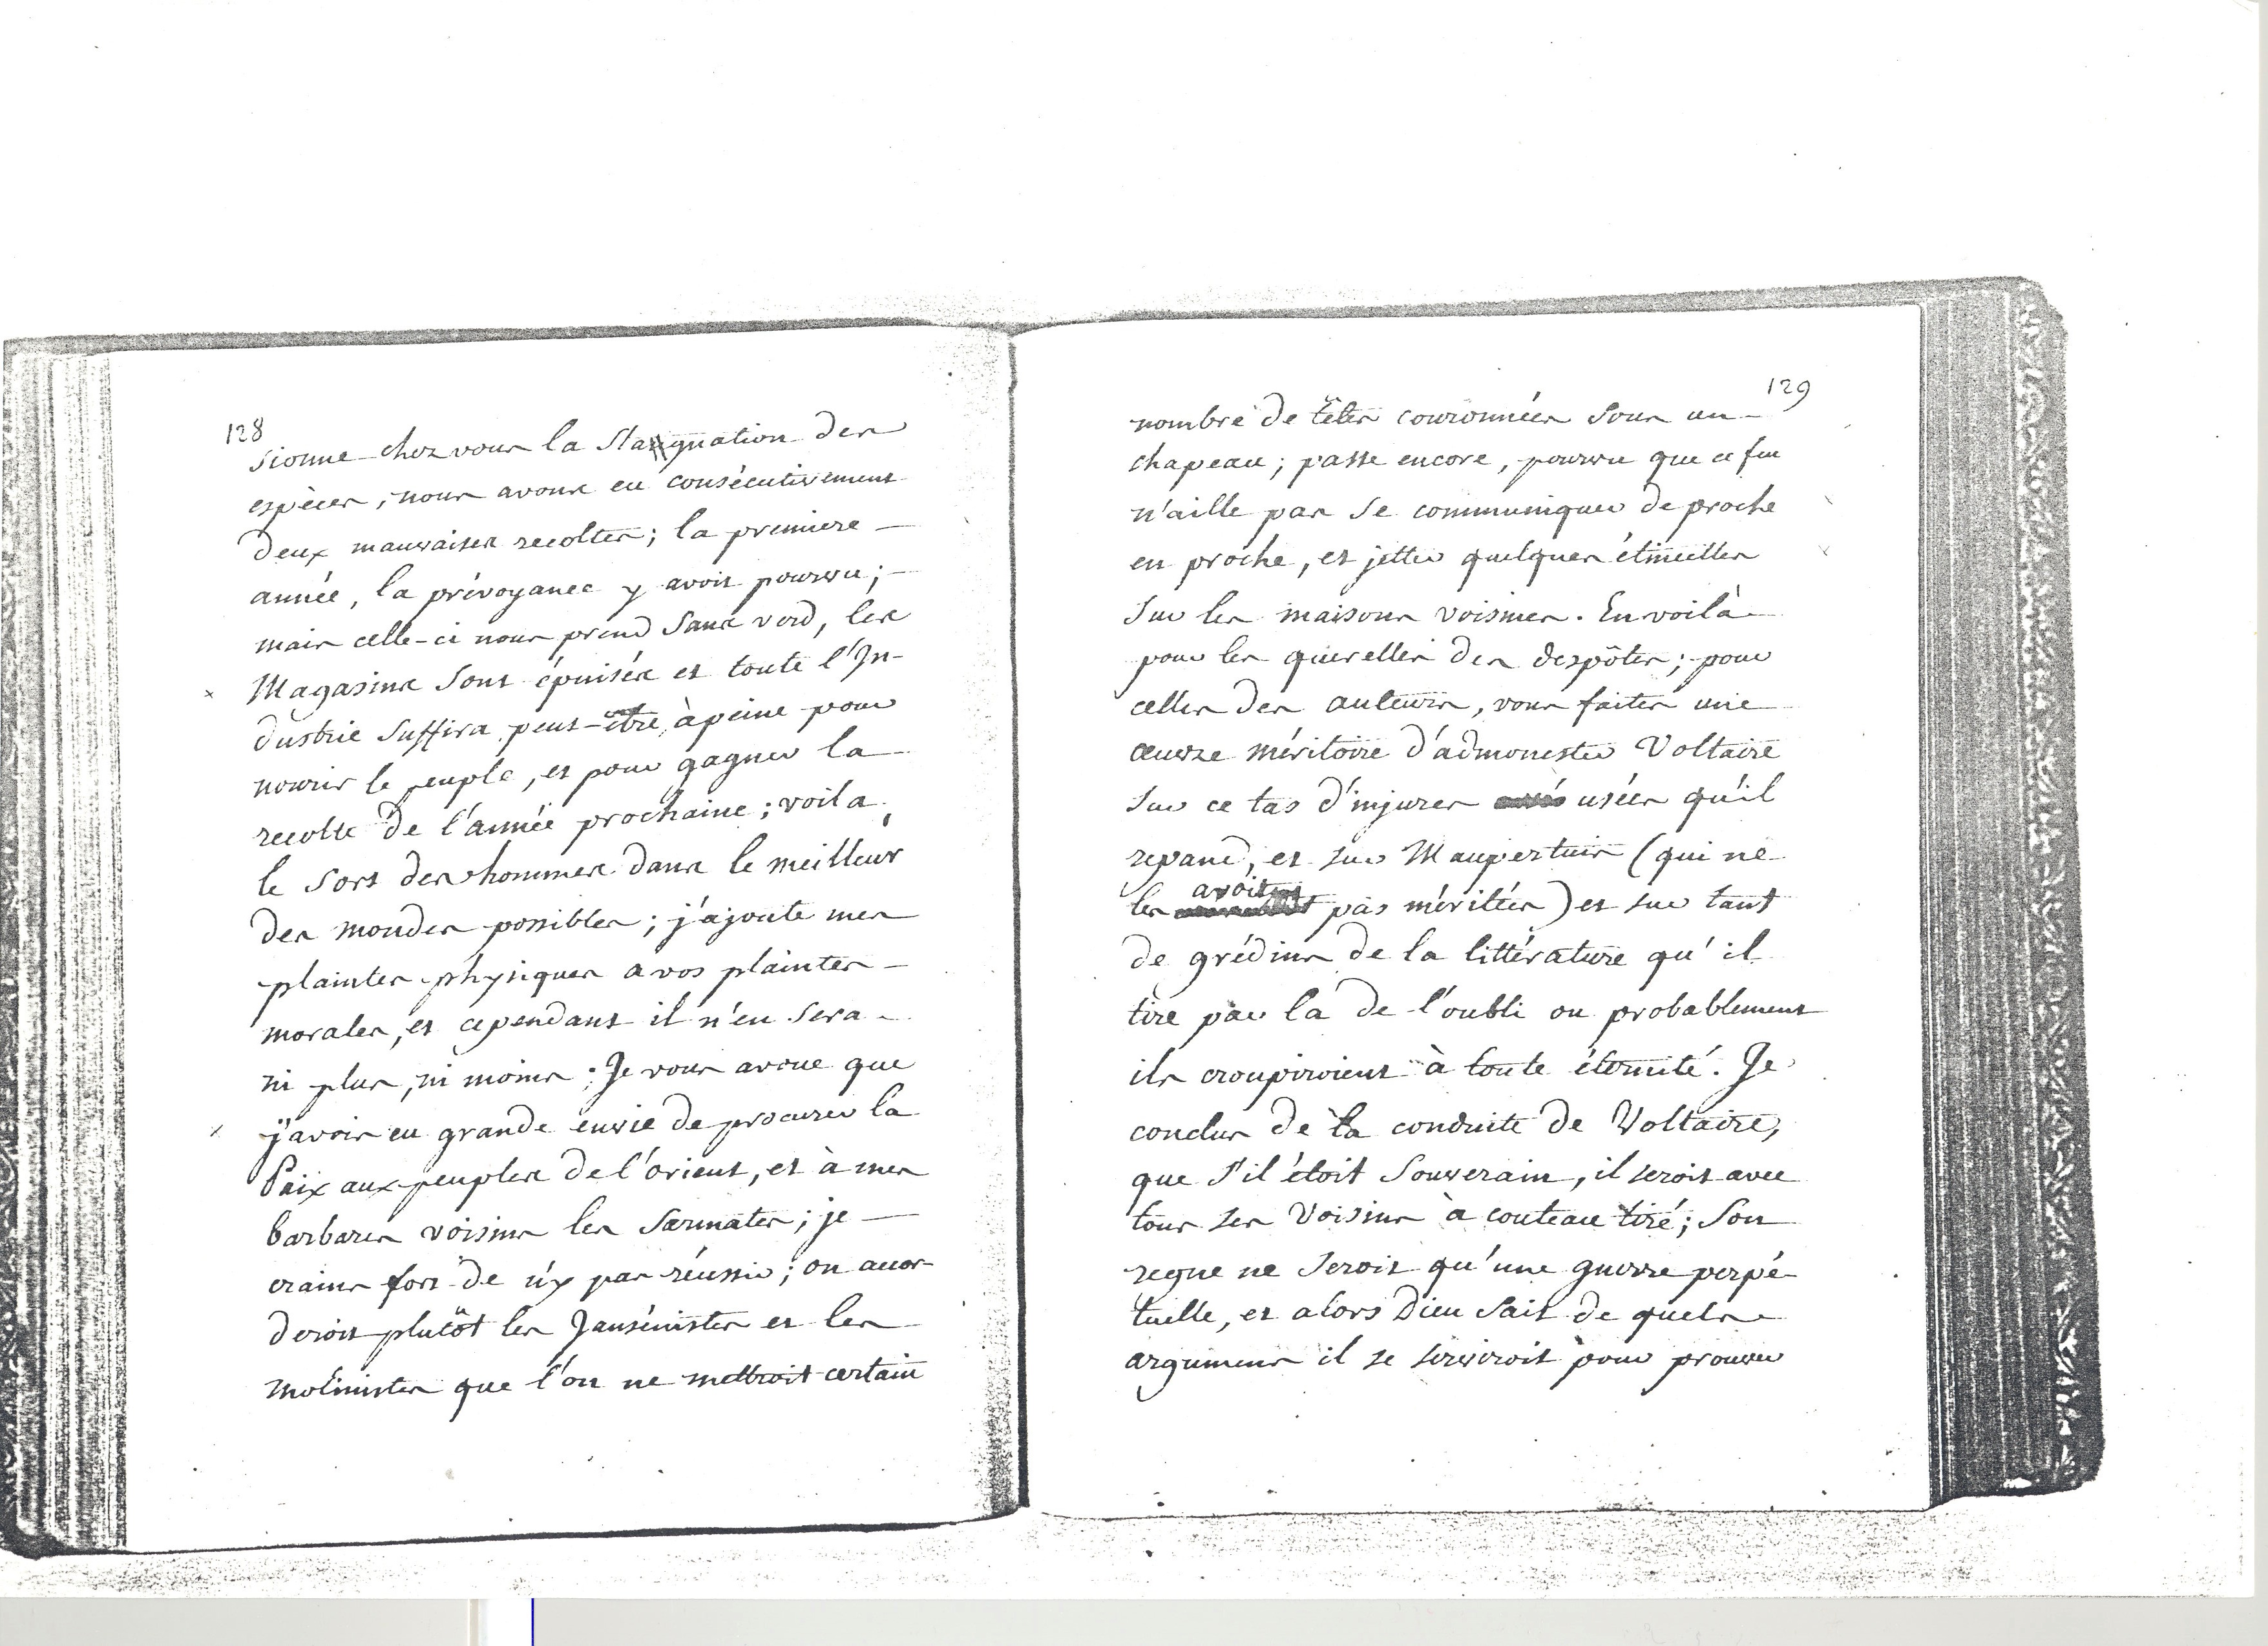 128
sionne chez vous la stagnation des
espèces, nous avons eu consécutivement
deux mauvaises recoltes; la premiere
année, la prévoyance y avoit pourvu;
mais celle-ci nous prend sans verd, les
Magasins sont épuisés et toute l'In-
dustrie suffira peut-être, àpeine pour
nourir le peuple, et pour gagner la
recolte de l'année prochaine; voila
le sort des hommes dans le meilleur
des mondes possibles; j'ajoute mes
plaintes physiques a vos plaintes
morales, et cependant il n'en sera
ni plus, ni moins; Je vous avoue que
j'avois eu grande envie de procurer la
Paix aux peuples de l'orient, et à mes
barbares voisins les Sarmates; je
crains fort de n'y pas réussir; on accor-
deroit plutôt les Jansénistes et les
molinistes que l'on ne mettroit certain
129
nombre de têtes couronnées sous un
chapeau; passe encore, pourvu que ce feu
n'aille pas se communiquer de proche
en proche, et jetter quelques étincelles
sur les maisons voisines. En voilà
pour les querelles des despôtes; pour
celles des auteurs, vous faites une
œuvre méritoire d'admonester Voltaire
sur ce tas d'injures usées qu'il
repand, et sur Maupertuis (qui ne
les avoit pas méritées) et sur tant
de grédins de la littérature qu'il
tire par la de l'oubli ou probablement
ils croupiroient à toute éternité. Je
conclus de la conduite de Voltaire,
que s'il étoit Souverain, il seroit avec
tous ses Voisins à couteau tiré; Son
regne ne seroit qu'une guerre perpé-
tuelle, et alors Dieu sait de quels
argumens il se serviroit pour prouver